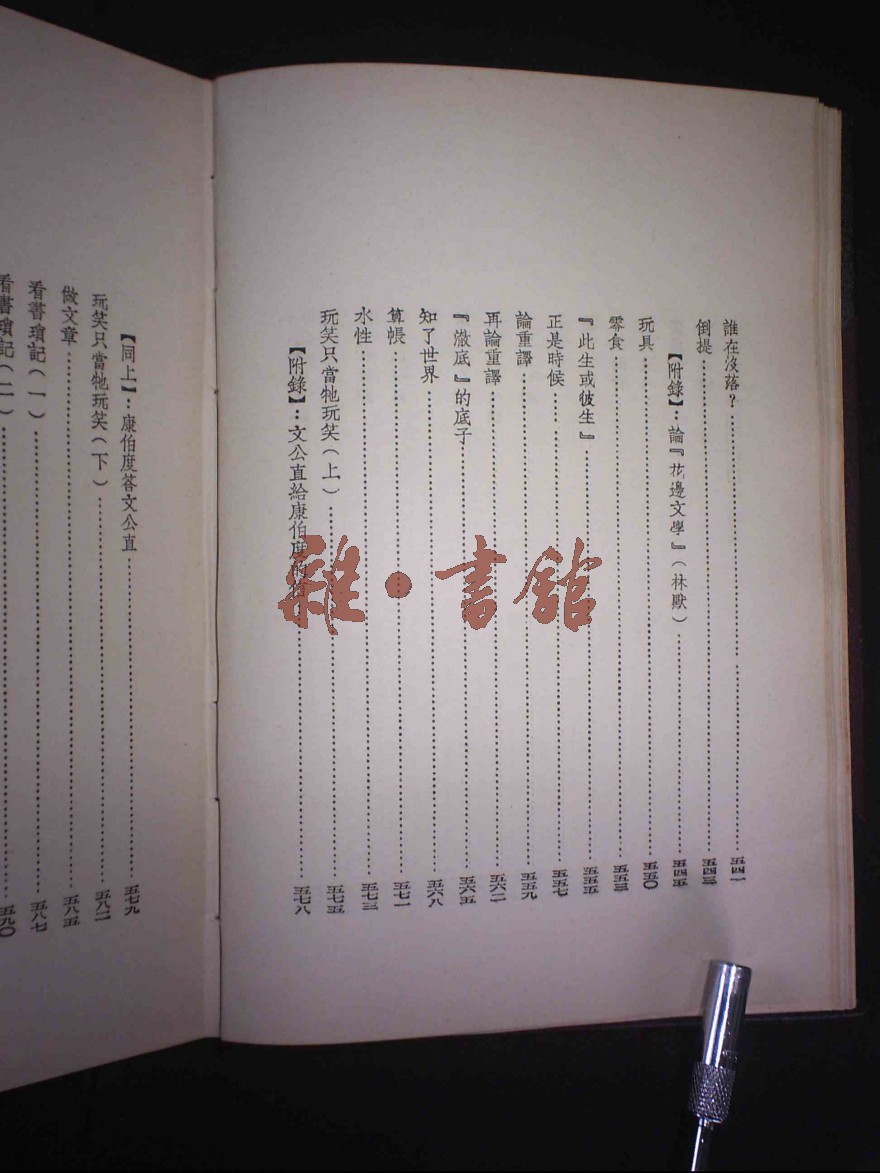 誰在沒落？……五四一
倒提……五四三
【附錄】：論『花邊文學』（林默）……五四五
玩具……五五〇
零食……五五三
『此生或彼生』……五五五
正是時候……五五七
論重譯……五五九
再論重譯……五六二
『澈底』的底子……五六五
知了世界……五六八
算帳……五七一
水性……五七三
玩笑只當牠玩笑（上）……五七五
【附錄】：文公直給康伯度的……五七八
【同上】：康伯度答文公直……五七九
玩笑只當牠玩笑（下）……五八二
做文章……五八五
看書瑣記（一）……五八七
看書瑣記（二）……五九〇
雜·書館